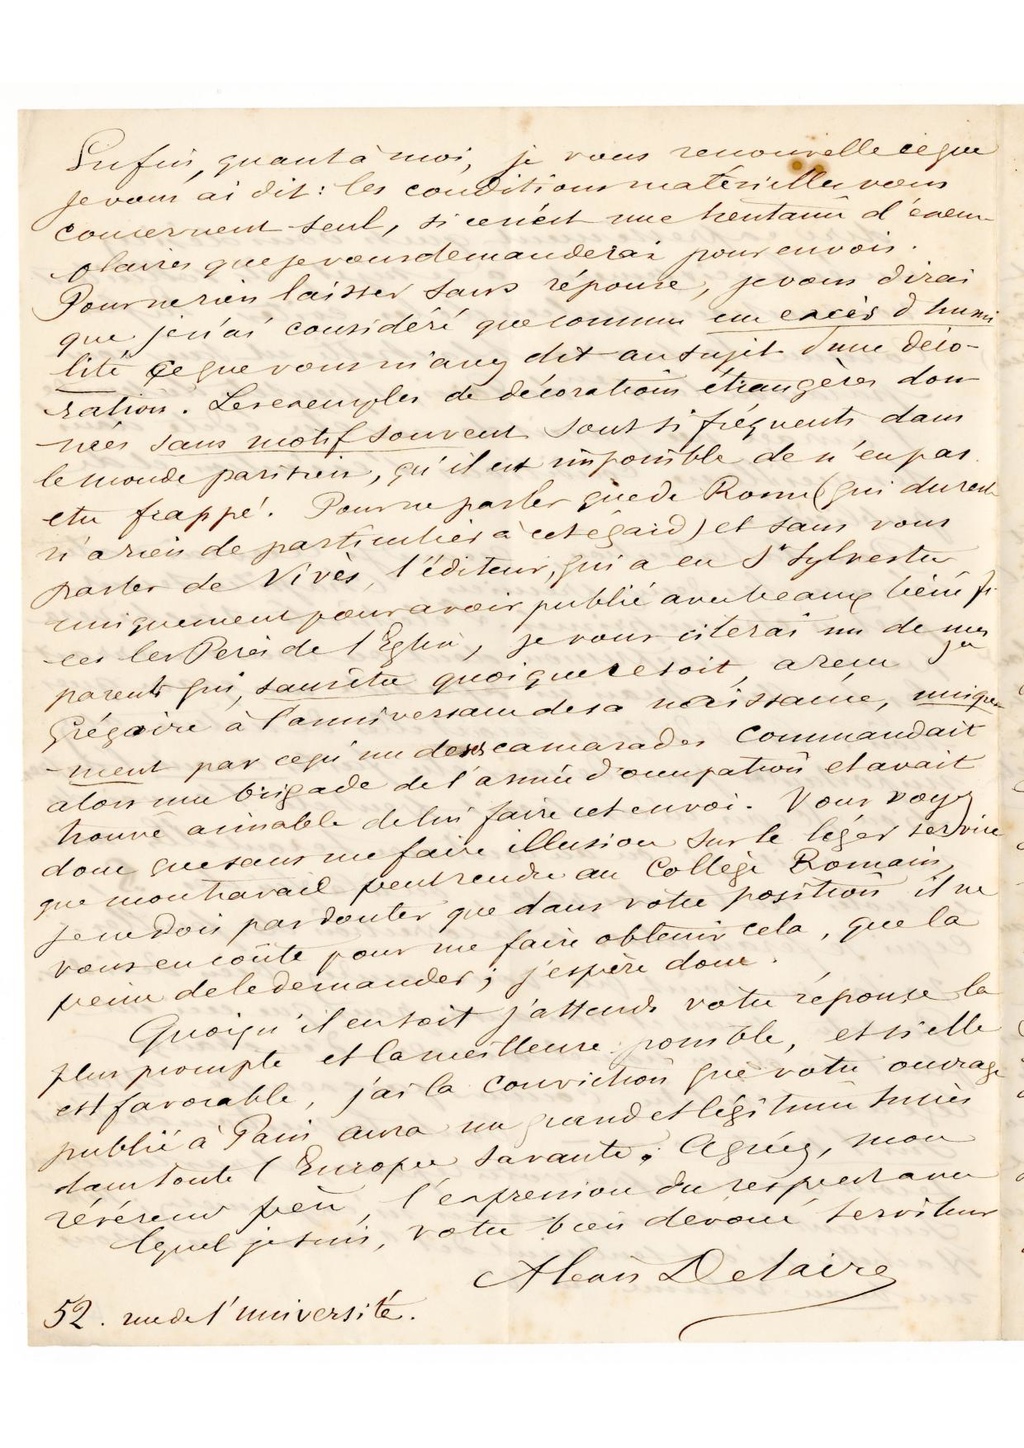 Enfin, quant à moi, je vous renouvelle ce que
je vous ai dit : les conditions matérielles vous
concernent seul, si ce n'est une trentaine d'exem-
plaires que je vous demanderai pour envois.
Pour ne rien laisser sans réponse, je vous dirai
que je n'ai considéré que comme un excès d'humi
lité ce que vous m'avez dit au sujet d'une déco-
ration. Les exemples de décorations étrangères don
nées sans motif souvent sont si fréquents dans
le monde parisien, qu'il est impossible de n'en pas
être frappé. Pour ne parler que de Rome (qui du reste
n'a rien de particulier à cet égard) et sans vous
parler de Vivès, l'éditeur, qui a eu St Sylvestre
uniquement pour avoir publié avec beaux bénéfi
ces les Pères de l'Eglise, je vous citerai un de mes
parents qui, sans être quoique ce soit, a reçu St
Grégoire à l'anniversaire de sa naissance, unique
ment par ce qu'un de ses camarades commandait
alors une brigade de l'armée d'occupation et avait
trouvé aimable de lui faire cet envoi. Vous voyez
donc que sans me faire illusion sur le léger service
que mon travail peut rendre au Collège Romain,
je ne dois pas douter que dans votre position il ne
vous en coûte pour me faire obtenir cela, que la
peine de le demander ; j'espère donc.
Quoiqu'il en soit j'attends votre réponse la
plus prompte et la meilleure possible, et si elle
est favorable, j'ai la conviction que votre ouvrage
publié à Paris aura un grand et légitime succès
dans toute l'Europe savante. Agréez, mon
révérend père, l'expression du respect avec
lequel je suis, votre bien dévoué serviteur
Alexis Delaire
52. rue de l'université.